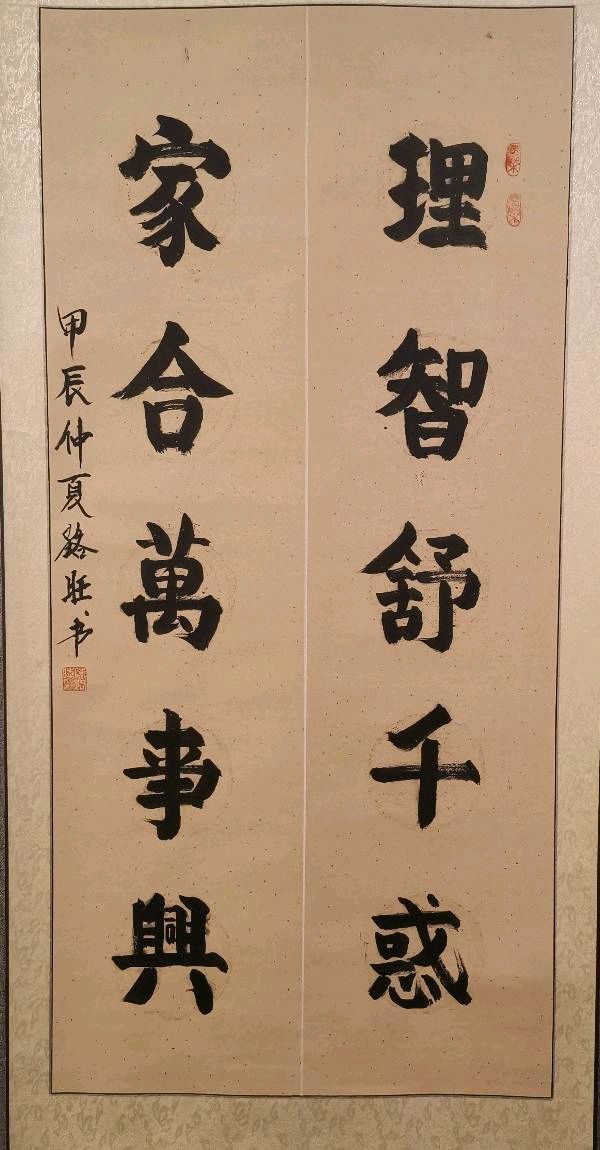 理智舒千惑
家合萬事興
甲辰仲夏骆旺书